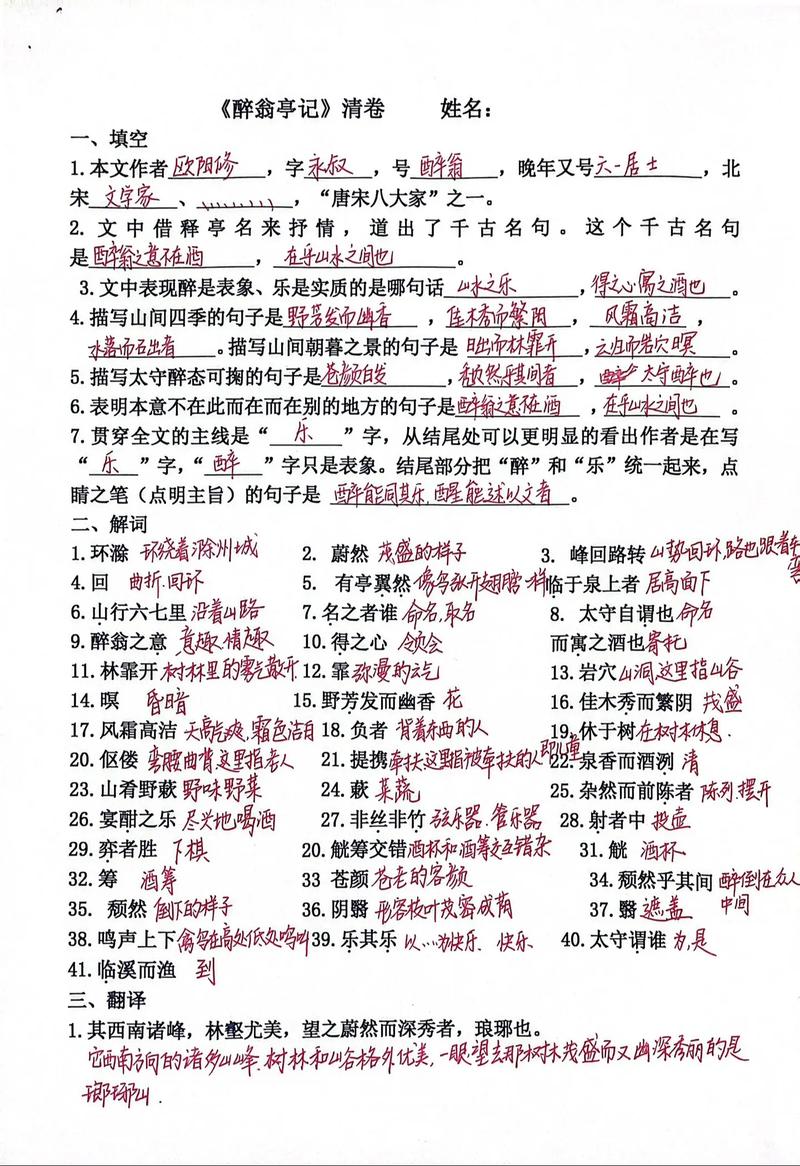 《醉翁亭记》清卷 姓名：
一、填空
1.本文作者 欧阳修 ，字 永叔 ，号 醉翁 ，晚年又号 六一居士 ，北
宋 文学家 、 ，“唐宋八大家”之一。
2.文中借释亭名来抒情，道出了千古名句。这个千古名句
是 醉翁之意不在酒 ， 在乎山水之间也 。
3.文中表现醉是表象、乐是实质的是哪句话 山水之乐 ，得之心寓之酒也 。
4.描写山间四季的句子是 野芳发而幽香 ，佳木秀而繁阴 ， 风霜高洁 ，
水落而石出者 。描写山间朝暮之景的句子是 日出而林霏开 ，云归而岩穴暝 。
5.描写太守醉态可掬的句子是 苍颜白发 ，颓然乎其间者 ， 太守醉也 。
6.表明本意不在此而在而在别的地方的句子是 醉翁之意不在酒 ，在乎山水之间也 。
7.贯穿全文的主线是“ 乐 ”字，从结尾处可以更明显的看出作者是在写
“ 乐 ”字，“ 醉 ”字只是表象。结尾部分把“醉”和“乐”统一起来，点
睛之笔（点明主旨）的句子是 醉能同其乐,醒能述以文者 。
二、解词
1.环滁 环绕着滁州城 2. 蔚然 茂盛的样子 3. 峰回路转 山势回环,路也跟着转弯
4.回 曲折.回环 5. 有亭翼然 像鸟张开翅膀一样 临于泉上者 居高面下
6.山行六七里 沿着山路 7.名之者谁 命名,取名 8. 太守自谓也 命名
9.醉翁之意 意趣.情趣 10.得之心 领会 而寓之酒也 寄托
11.林霏开 树林里的雾气散开 12.霏 弥漫的云气 13.岩穴 山洞,这里指山谷
14.暝 昏暗 15.野芳发而幽香 花 16.佳木秀而繁阴 茂盛
17.风霜高洁 天高气爽,霜色洁白 18.负者 背着东西的人 19.休于树 在树木休息.
20.伛偻 弯腰曲背,这里指老人 21.提携 牵扶,这里指被牵扶的人即儿童 22.泉香而酒洌 清
23.山肴野蔌 野味野菜 24.蔌 菜蔬 25.杂然而前陈者 陈列.摆开
26.宴酣之乐 尽兴地喝酒 27.非丝非竹 弦乐器.管乐器 28.射者中 投壶
29.弈者胜 下棋 20.觥筹交错 酒杯和酒筹交互错杂 31.觥 酒杯
32.筹 酒筹 33 苍颜 苍老的容颜 34.颓然乎其间 醉倒在众人中间
35. 颓然 倒下的样子 36.阴翳 形容枝叶茂密成荫 37.翳 遮盖
38.鸣声上下 禽鸟在高处低处鸣叫 39.乐其乐 以…为快乐、快乐 40.太守谓谁 为,是
41.临溪而渔 到
三、翻译
1.其西南诸峰，林壑尤美，望之蔚然而深秀者，琅琊也。
它西南方向的诸多山峰.树林和山谷格外优美,一眼望去那树木茂盛而又幽深秀丽的是
瑯琊山.